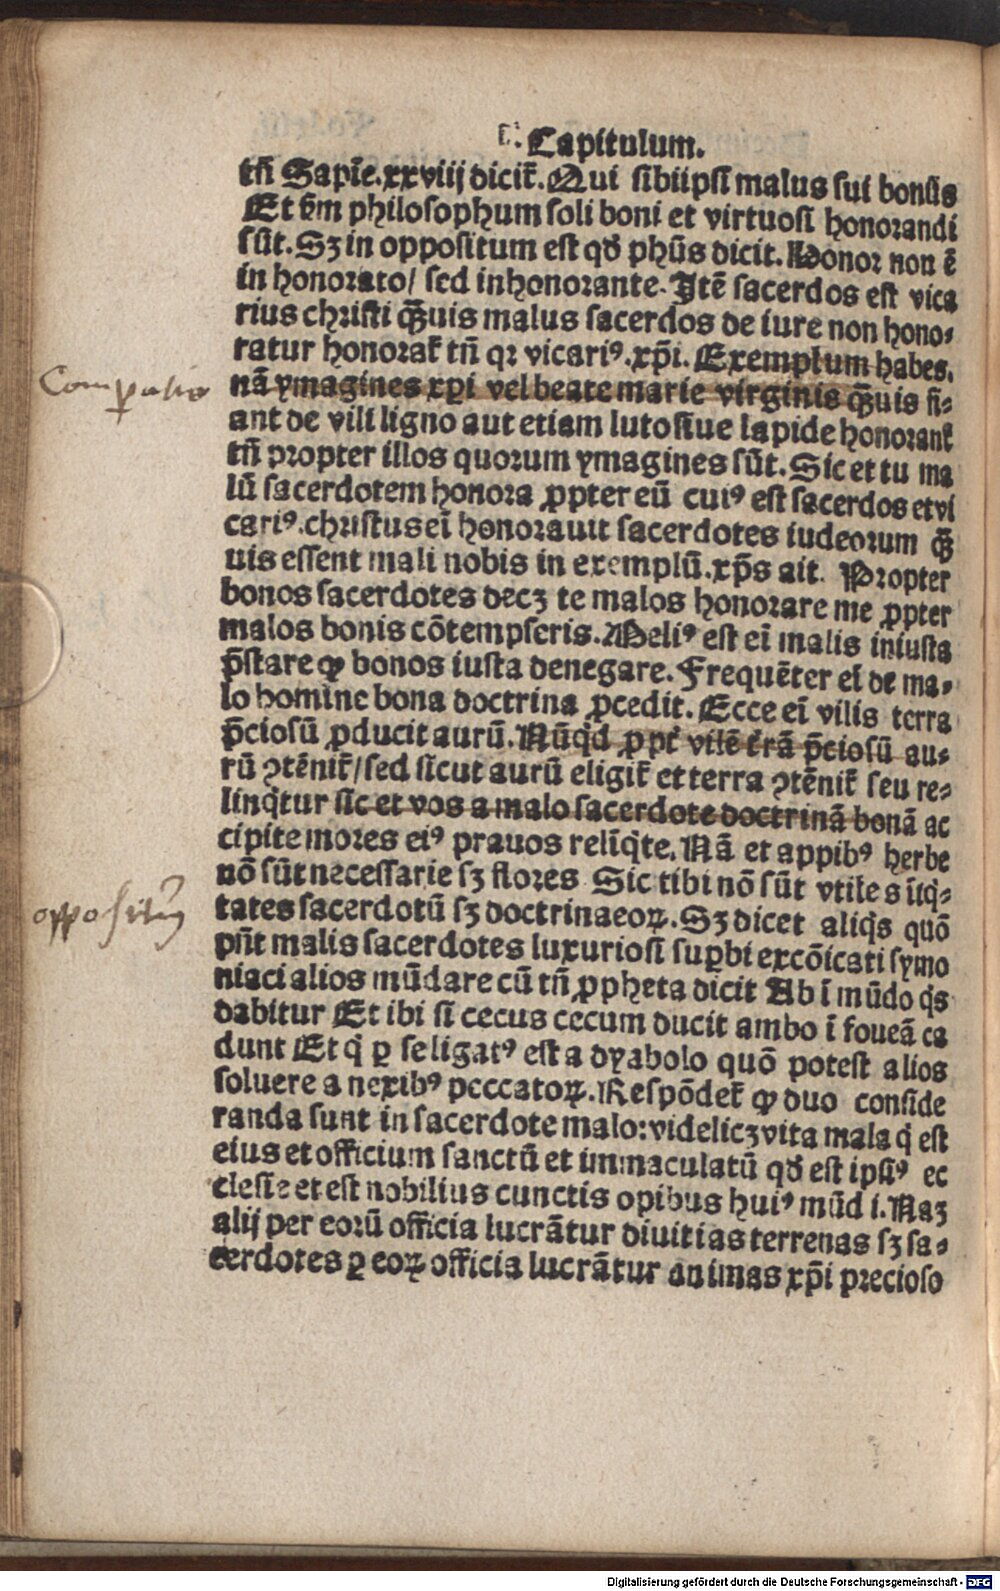 Capitulum.
tñ Sapiē.xxviij dicit̃. Qui sibiipsi malus sui bonus
Et scďm philosophum soli boni et virtuosi honorandi
sūt. Sʒ in oppositum est qď phūs dicit. Honor non ē
in honorato/ sed inhonorante. Itē sacerdos est vica
rius christi q̃uis malus sacerdos de iure non hono⸗
ratur honorat̃ tñ qꝛ vicariꝰ.xp̄i. Exemplum habes.
nā ymagines xpi vel beate marie virginis q̃uis fi⸗
ant de vili ligno aut etiam luto siue lapide honorant̃
tñ propter illos quorum ymagines sūt. Sic et tu ma
lū sacerdotem honora ꝓpter eū cuiꝰ est sacerdos et vi
cariꝰ. christus eī honorauit sacerdotes iudeorum q̃
uis essent mali nobis in exemplū. xp̄s ait. Propter
bonos sacerdotes decʒ te malos honorare me ꝓpter
malos bonis cōtempseris. Meliꝰ est eī malis iniusta
p̄stare ꝙ bonos iusta denegare. Frequēter eī de ma⸗
lo homine bona doctrina ꝓcedit. Ecce eī vilis terra
p̄ciosū ꝓducit aurū. Nūqd̄ ꝓpt̃ vilē t̃rā p̄ciosū au⸗
rū ꝯtēnit̃/ sed sicut aurū eligit̃ et terra ꝯtēnit̃ seu re⸗
linq̄tur sic et vos a malo sacerdote doctrinā bonā ac
cipite mores eiꝰ prauos reliq̄te. Nā et appibꝰ herbe
nō sūt necessarie sʒ flores Sic tibi nō sūt vtiles iīq̄⸗
tates sacerdotū sʒ doctrina eoꝝ. Sʒ dicet aliq̄s quō
pn̄t malis sacerdotes luxuriosi suꝑbi excōicati symo
niaci alios mūdare cū tñ ꝓpheta dicit Ab ī mūdo q̄s
dabitur Et ibi si cecus cecum ducit ambo ī foueā ca
dunt Et q̄ ꝑ se ligatꝰ est a dyabolo quō potest alios
soluere a nexibꝰ peccatoꝝ. Respōdet̃ ꝙ duo conside
randa sunt in sacerdote malo: videlicʒ vita mala q̄ est
eius et officium sanctū et immaculatū qď est ipsiꝰ ec
clesie et est nobilius cunctis opibus huiꝰ mūdi. Naʒ
alij per eorū officia lucrātur diuitias terrenas sʒ sa⸗
cerdotes ꝑ eoꝝ officia lucrātur animas xp̄i precioso
Comparatio
oppositum
Digitalisierung gefördert durch die Deutsche Forschungsgemeinschaft - DFG